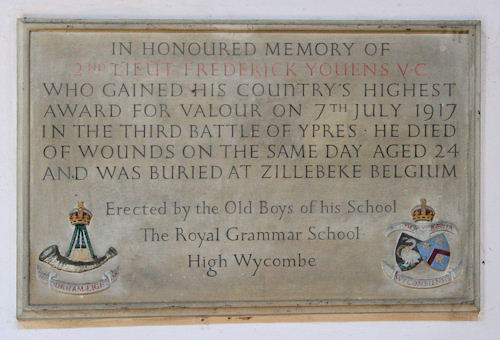 IN HONOURED MEMORY OF
2ND LIEUT FREDERICK YOUENS V·C·
WHO GAINED HIS COUNTRY'S HIGHEST
AWARD FOR VALOUR ON 7TH JULY 1917
IN THE THIRD BATTLE OF YPRES · HE DIED
OF WOUNDS ON THE SAME DAY AGED 24
AND WAS BURIED AT ZILLEBEKE BELGIUM
Erected by the Old Boys of his School
The Royal Grammar School
High Wycombe